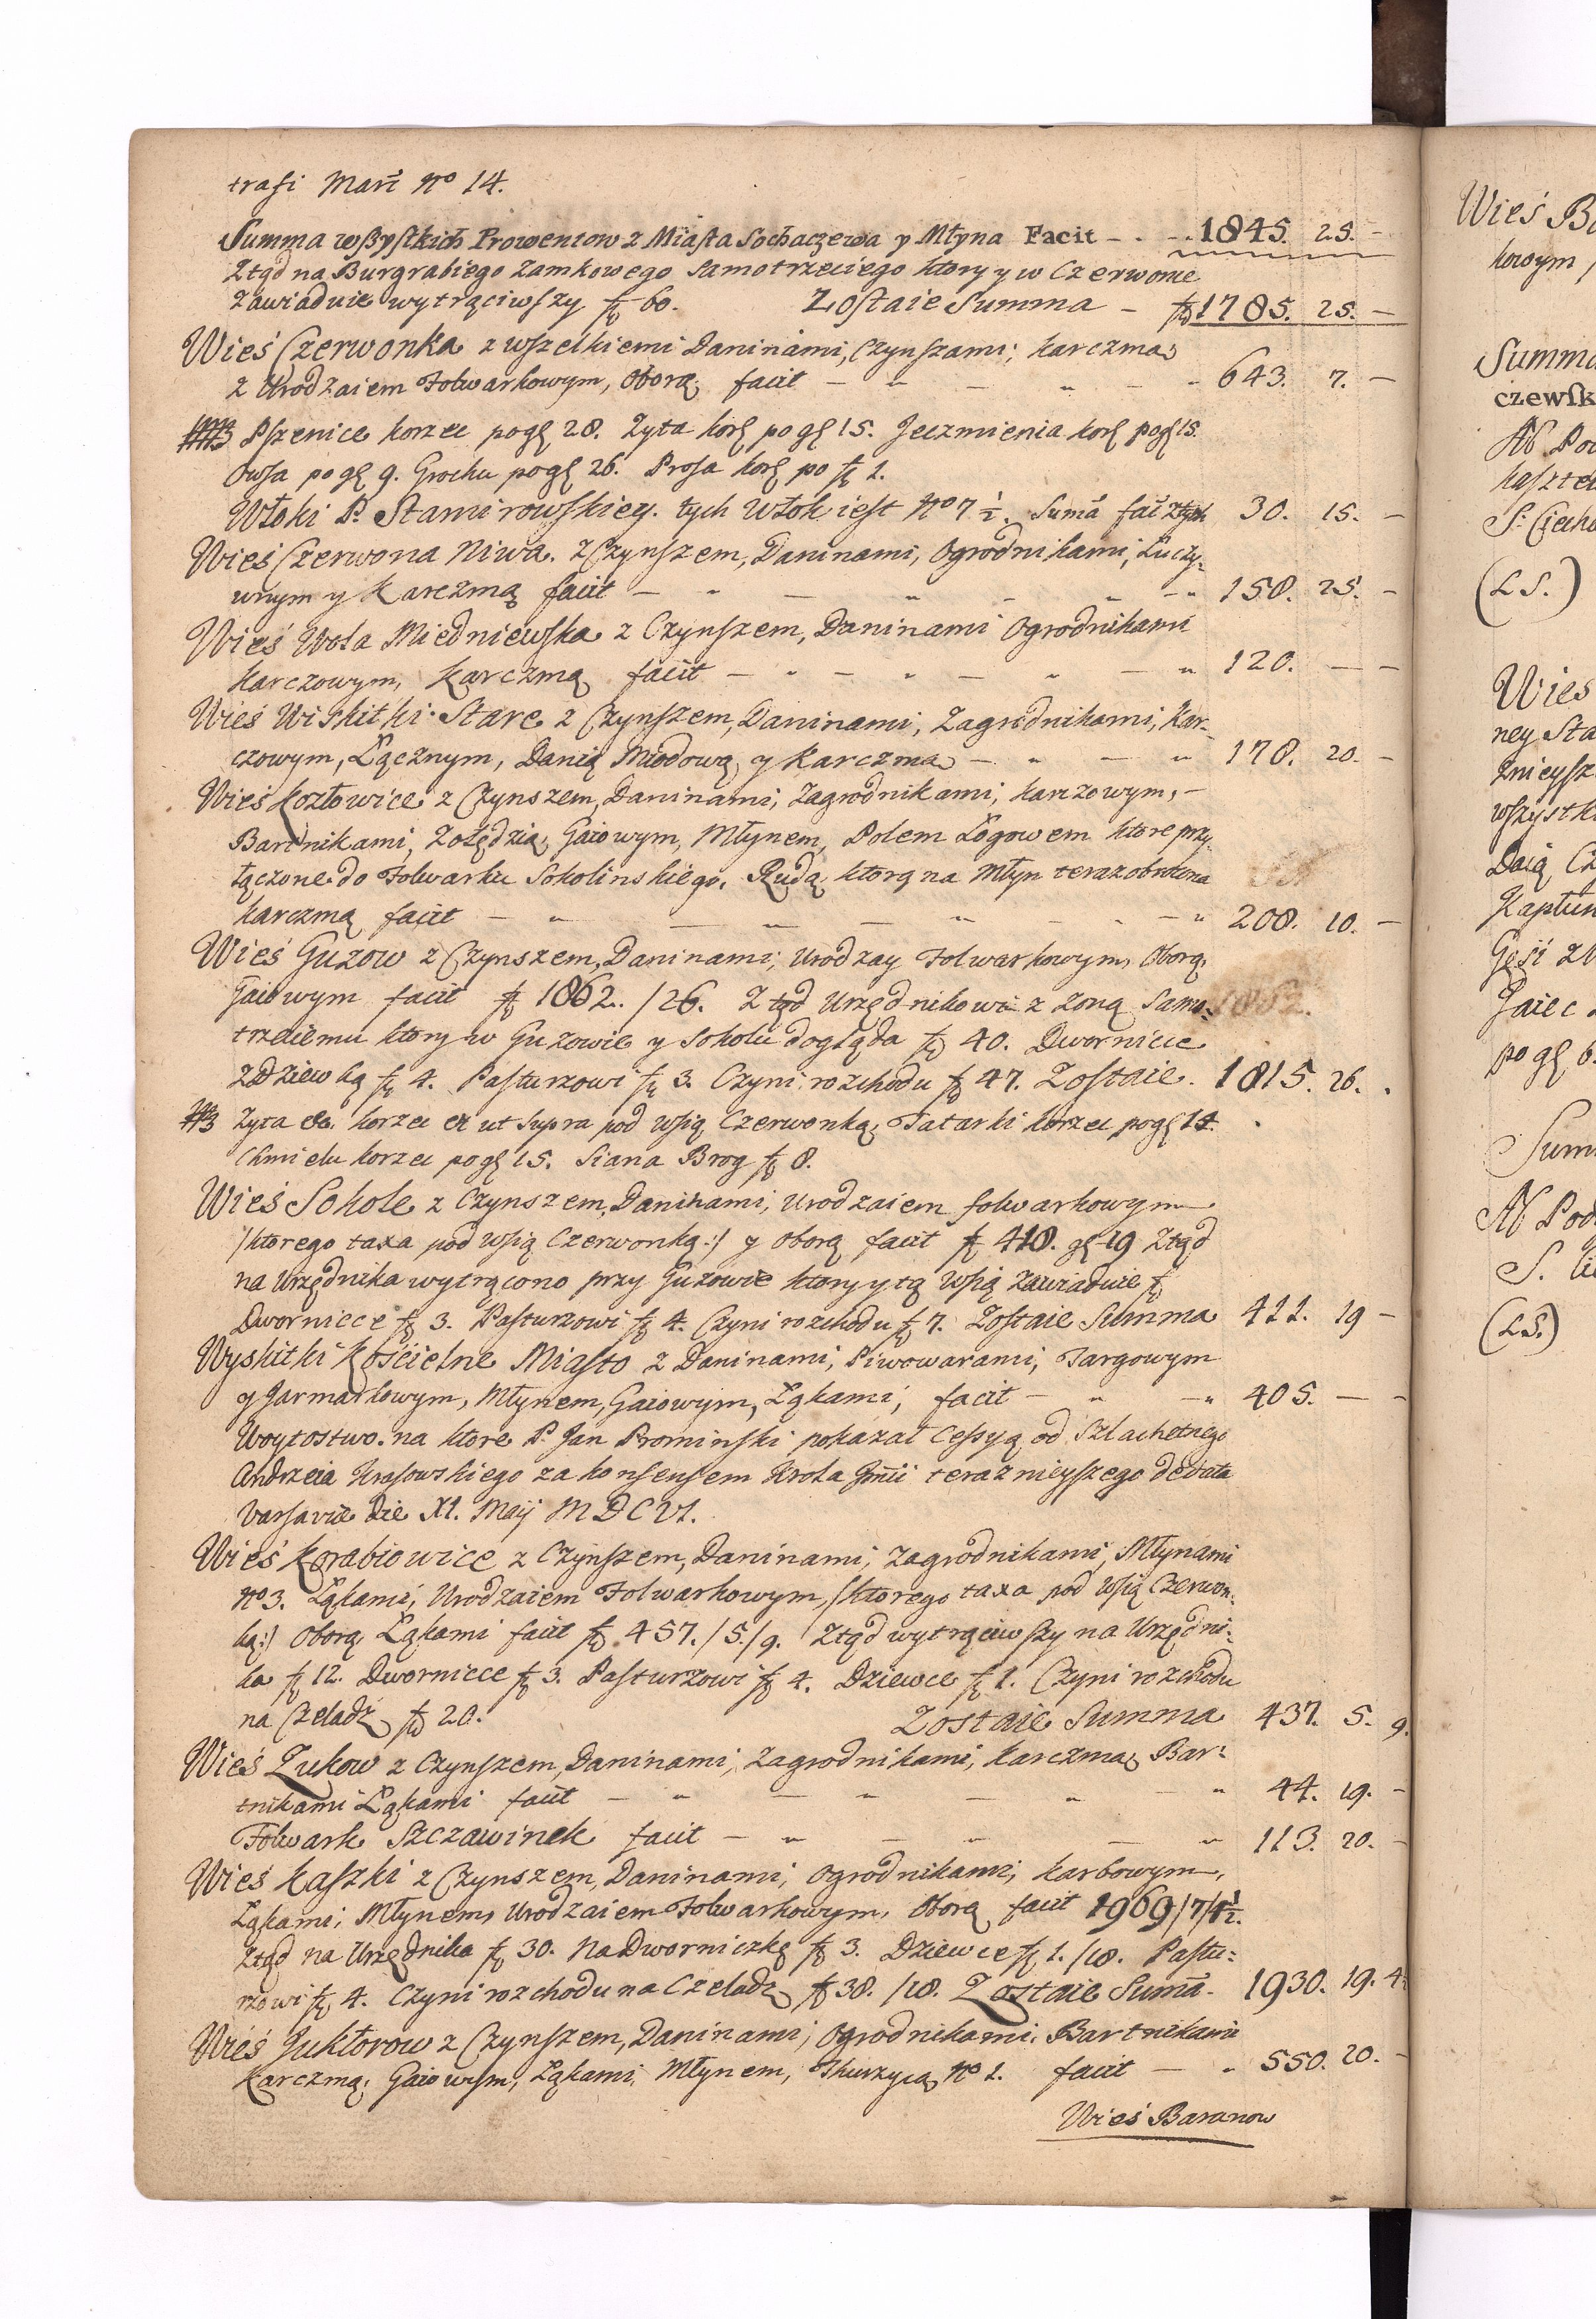 trafi Mart No 14.
Summa wszystkich Prowentow z Miasta Sochaczewa y Młyna Facit - . - . 1845. 25. -
Ztąd na Burgrabiego Zamkowego samotrzeciego ktory y w Czerwonce
zawiaduie wytrąciwszy fl 60. Zostaie Summa - fl 1785. 25. -
Wieś Czerwonka z wszelkiemi Daninami, Czynszami, karczmą
z Urodzaiem Folwarkowym, Oborą. facit - " - " - " 643. 7. -
Pszenice korzec po gl 28. Zyta korl po gl 15. Jeczmienia korl po gl 15.
Owsa po gl 9. Grochu po gl 26. Prosa korl po fl 1.
Włoki P. Stamirowskiey. tych Włok iest No 7 1/2. Suma fac ztych 30. 15. -
Wieś Czerwona Niwa. z Czynszem, Daninami, Ogrodnikami, Łuczy-
wnym y Karczmą facit - " - " - " - " 158. 25. -
Wieś Wola Miedniewska z Czynszem, Daninami Ogrodnikami
Karczowym, Karczmą facit - " - " - " - " 120. - -
Wieś Wiskitki Stare z Czynszem, Daninami, Zagrodnikami, Kar-
czowym, Łącznym, Danią Miodową y Karczmą - " - " 178. 20. -
Wieś Kozłowice z Czynszem, Daninami, Zagrodnikami, karczowym, -
Bartnikami, Zołędzią, Gaiowym, Młynem, Polem Łogowem ktore przy-
łączone do Folwarku Sokolinskiego, Rudą, ktorą na Młyn teraz obrocona
karczmą facit - " - " - " - " 208. 10. -
Wieś Guzow z Czynszem, Daninami, Urodzay Folwarkowym, Oborą,
Gaiowym facit fl 1862. /26. Ztąd Urzędnikowi z Zoną Samo-
trzeciemu ktory w Guzowie y Sokolu dogląda fl 40. Dwornicce
z Dziewką fl 4. Pasturzowi fl 3. Czyni rozchodu fl 47. Zostaie. 1815. 26. .
Zyta &c. korzec ut supra pod Wsią Czerwonką, Tatarki korzec po gl 14.
Chmielu korzec po gl 15. Siana Brog fl 8.
Wieś Sokole z Czynszem, Daninami, Urodzaiem folwarkowym
/ktorego taxa pod Wsią Czerwonką:/ y Oborą facit fl 418. gl 19 Ztąd
na Urzędnika wytrącono przy Guzowie ktory y tą Wsią zawiaduie fl
Dwornicce fl 3. Pasturzowi fl 4. Czyni rozchodu fl 7. Zostaie Summa 411. 19 -
Wyskitki Kościelne Miasto z Daninami, Piwowarami, Targowym
y Jarmarkowym, Młynem, Gaiowym, Łąkami, facit - " - " 405. - -
Woytostwo. na ktore P. Jan Prominski pokazał Cessyą od Szlachetnego
Andrzeia Krasowskiego za konsensem Krola Jmci teraznieyszego de data
Varsaviæ die XI. Maij MDCVI.
Wieś Korabiowice z Czynszem, Daninami, Zagrodnikami, Młynami
No 3. Łąkami, Urodzaiem Folwarkowym, /ktorego taxa pod Wsią Czerwon-
ką:/ Oborą, Łąkami facit fl 457. /5. /9. Ztąd wytrąciwszy na Urzędni-
ka fl 12. Dwornicce fl 3. Pasturzowi fl 4. Dziewce fl 1. Czyni rozchodu
na Czeladź fl 20. Zostaie Summa 437. 5. 9.
Wieś Zukow z Czynszem, Daninami, Zagrodnikami, karczmą, Bar-
tnikami Łąkami facit - " - " - " - " 44. 19. -
Folwark Szczawinek facit - " - " - " 113. 20. -
Wieś Kaszki z Czynszem, Daninami, Ogrodnikami, karbowym,
Łąkami, Młynem, Urodzaiem Folwarkowym, Oborą facit 1969/7/4 1/2.
Ztąd na Urzędnika fl 30. Na Dworniczkę fl 3. Dziewce fl 1. /18. Pastu-
rzowi fl 4. Czyni rozchodu na Czeladz fl 38. /18. Zostaie Suma. 1930. 19. 4
Wieś Juktorow z Czynszem, Daninami, Ogrodnikami, Bartnikami
Karczmą, Gaiowym, Łąkami, Młynem, No 1. facit - " 550. 20. -
Wieś Baranow
Wieś Ba
kowym
Summa
czewsk
Kasztel
(LS.)
Wies
ney Sta
wszystk
Daią Cz
Kapłun
Gęsi
Jaiec
po gl 6.
Sum
(LS.)